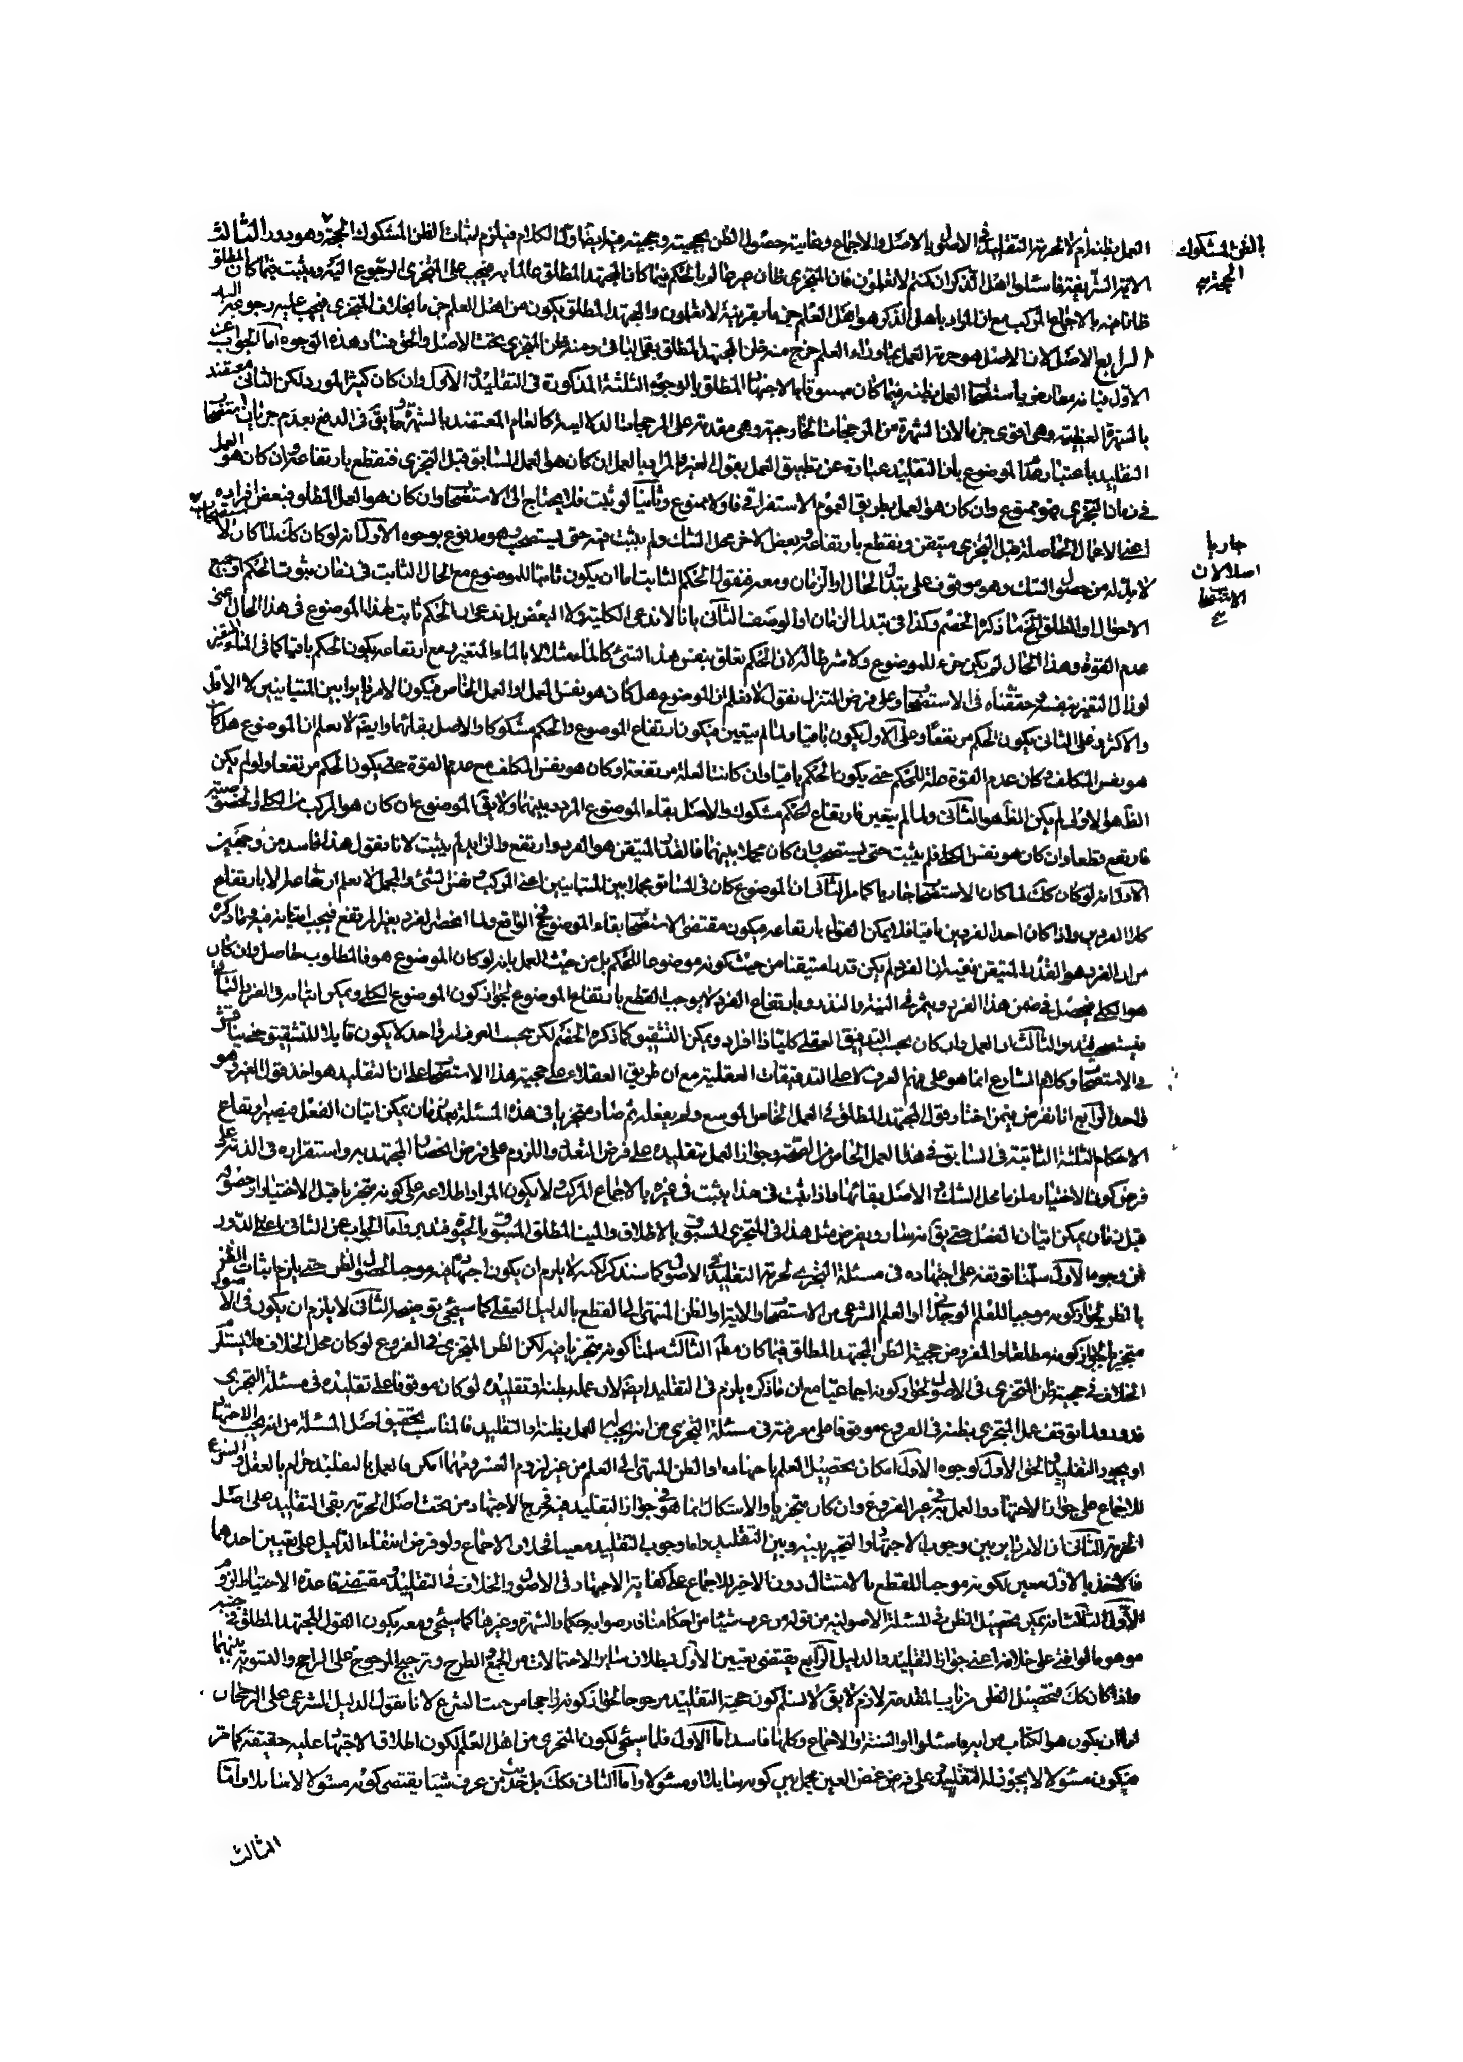 العمل بظنه أم لا لحرمة التقليد في الاصول بالاصل والاجماع وغايته حصول الظن بحجيته وحجيته فيه ايضا اول الكلام فيلزم اثبات الظن المشكوك الحجية وهو دور الثالث
بالظن المشكوك
الحجية
الاية الشريفة فاسئلوا اهل الذكر ان كنتم لا تعلمون فان المتجزى ظان عرضا لو بالحكم فيما كان المجتهد المطلق عالما به فيجب على المتجزى الرجوع اليه ويثبت فيما كان المطلق
ظانا فيه بالاجماع المركب مع ان المراد باهل الذكر هو اهل العلم بقرينة لا تعلمون والمجتهد المطلق يكون من اهل العلم بخلاف المتجزى فيجب عليه رجوعه اليه
الرابع الاصل لان الاصل هو حرمة العمل بما وراء العلم خرج منه ظن المجتهد المطلق بقى الباقى ومنه ظن المتجزى تحت الاصل والحق فساد هذه الوجوه اما الجواب عن
الاول فبانه معارض باستصحاب العمل بظنه فيما كان مسبوقا بالاجتهاد المطلق بالوجوه الثلثة المذكورة في التقليد الاول وان كان كثير المورد لكن الثانى معتضد
بالشهرة العظيمة وهى اقوى
التقليد باعتبار هذا الموضوع بان التقليد عبارة عن تطبيق العمل بقول الغير والمراد بالعمل ان كان هو العمل السابق قبل التجزى فنقطع بارتفاعه وان كان هو العمل
في زمان التجزى فهو ممنوع وان كان هو العمل بطريق العموم الاستغراقى فاولا ممنوع وثانيا لو ثبت فلا يحتاج الى الاستصحاب وان كان هو العمل المطلق فبعض افراده
اعنى الاعمال الحاصلة قبل التجزى متيقن ونقطع بارتفاعه وبعض الاخر محل الشك ولم يثبت فيه حتى يستصحب وهو مدفوع بوجوه الاول انه لو كان كك لما كان
جاريا
اصلا لان
الاستصحاب
لا بد له من حصول الشك وهو موقوف على تبدل الحال او الزمان ومعه فنقول الحكم الثابت اما ان يكون ثابتا للموضوع مع الحال الثابت في زمان ثبوت الحكم او جميع
الاحوال او المطلق الخ ما ذكره الخصم وكذا في تبدل الزمان او الوصف الثانى بانا لا ندعى الكلية ولا البعض بل ندعى ان الحكم ثابت لهذا الموضوع في هذا الحال اعنى
عدم القوة وهذا الحال لم يكن جزء للموضوع ولا شرطا له لان الحكم تعلق بنفس هذا الشئ كالماء مثلا لا بالماء المتغير ومع ارتفاعه يكون الحكم باقيا كما في الماء المتغير
لو زال التغير بنفسه وحققناه في الاستصحاب وعلى فرض التنزل نقول لا نعلم ان الموضوع هل كان هو نفس العمل او العمل الخاص فيكون الامر دايرا بين المتباينين لا الاقل
والاكثر وعلى الثانى يكون الحكم مرتفعا وعلى الاول يكون باقيا ولما لم يتعين فيكون ارتفاع الموضوع والحكم مشكوكا والاصل بقائهما وايضا لا نعلم ان الموضوع هل كان
هو نفس المكلف وكان عدم القوة علة للحكم حتى يكون الحكم باقيا وان كانت العلة مرتفعة او كان هو نفس المكلف مع عدم القوة حتى يكون الحكم مرتفعا ولو لم يكن
الظ هو الاول لم يكن الظ هو الثانى ولما لم يتعين فارتفاع الحكم مشكوك والاصل بقاء الموضوع المردد بينهما ولا يقال الموضوع ان كان هو المركب من الكلى والخصوصية
فارتفع قطعا وان كان هو نفس الكلى فلم يثبت حتى يستصحب وان كان مجملا بينهما فالقدر المتيقن هو الفرد وارتفع والزايد لم يثبت لانا نقول هذا فاسد من وجهين
الاول انه لو كان كك لما كان الاستصحاب جاريا كما مر الثانى ان الموضوع كان في السابق مجملا بين المتباينين اعنى المركب ونفس الشئ والمجمل لا يعلم ارتفاعه الا بارتفاع
كلا الفردين واذا كان احد الفردين باقيا فلا يمكن القول بارتفاعه فيكون مقتضى الاستصحاب بقاء الموضوع في الواقع ولما انحصر الفرد بغير المرتفع فيجب اتيانه فيه وما ذكره
من ان الفرد هو القدر المتيقن ففيه ان الفرد لم يكن قدرا متيقنا من حيث كونه موضوعا للحكم بل من حيث العمل بانه لو كان الموضوع هو فالمطلوب حاصل وان كان
هو الكلى فيحصل في ضمن هذا الفرد ويثمر في اليمين والنذر وبارتفاع الفرد لا يوجب القطع بارتفاع الموضوع لجواز كون الموضوع الكلى ويمكن اتيانه في الفرد الثانى
فيستصحب فتدبر الثالث ان العمل وان كان بحسب التدقيق العقلى كليا ذا افراد ويمكن التشقيق كما ذكره الخصم لكن بحسب العرف امر واحد لا يكون قابلا للتشقيق
في الاستصحاب وكلام الشارع انما هو على فهم العرف لا على التدقيقات العقلية مع ان طريق العقلاء على حجية هذا الاستصحاب على ان التقليد هو اخذ قول الغير وهو
واحد الرابع انا نفرض فيمن اختار قول المجتهد المطلق في العمل الخاص الموسع ولم يفعله ثم صار متجزيا في هذه المسئلة بعد زمان يمكن اتيان الفعل فيه فبارتفاع
الاحكام الثلثة الثابتة في السابق في هذا العمل الخاص من الصحة وجواز العمل بتقليده على فرض التعدد واللزوم على فرض انحصار المجتهد به واستقراره في الذمة على
فرض كون الاختيار ملزما محل الشك والاصل بقائها واذا يثبت في هذا يثبت في غيره بالاجماع المركب ولا يكون المراد اطلاعه على كونه متجزيا قبل الاختيار او حصوله
قبل زمان يمكن اتيان الفعل حتى يق انه سار ويفرض مثل هذا في المتجزى المسبوق بالاطلاق والميت المطلق المسبوق بالحيوة فتدبر واما الجواب عن الثانى اعنى الدور
فمن وجوه الاول سلمنا توقفه على اجتهاده في مسئلة التجزى لحرمة التقليد في الاصول كما سنذكر لكنه لا يلزم ان يكون اجتهاده فيه موجبا لحصول الظن حتى يلزم اثبات الظن
بالظن لجواز كونه موجبا للعلم الوجدانى او العلم الشرعى من الاستصحاب والاية او الظن المنتهى الى القطع بالدليل العقلى كما سيجئ توضيحه الثانى لا يلزم ان يكون في الاصول
متجزيا لجواز كونه مطلقا والمفروض حجية الظن المجتهد المطلق فيما كان مطلقا الثالث سلمنا كونه متجزيا فيه لكن الظن المتجزى في الفروع لو كان محل الخلاف فلا يستلزم
الخلاف في حجية ظن المتجزى في الاصول لجواز كونه اجماعيا مع ان ما ذكره يلزم في التقليد ايضا لان عمله بظنه او تقليده لو كان موقوفا على تقليده في مسئلة التجزى
فدور ولما توقف عمل المتجزى بظنه في الفروع موقوفا على معرفته في مسئلة التجزى من انه يجب له العمل بظنه او التقليد فالمناسب تحقيق اصل المسئلة من انه يجب الاجتهاد
او يجوز التقليد والحق الاول لوجوه الاول امكان تحصيل العلم باجتهاده او الظن المنتهى الى العلم من غير لزوم العسر ومهما امكن فالعمل بالتقليد حرام بالعقل والشرع
للاجماع على جواز الاجتهاد والعمل به في غير الفروع وان كان متجزيا والاشكال انما هو في جواز التقليد فيه فخرج الاجتهاد من تحت اصل الحرمة وبقى التقليد على اصل
الحرمة الثانى ان الامر داير بين وجوب الاجتهاد او التخيير بينه وبين التقليد واما وجوب التقليد معينا فخلاف الاجماع ولو فرض انتفاء الدليل على تعيين احدهما
فالاخذ بالاول معين لكونه موجبا للقطع بالامتثال دون الاخر للاجماع على كفاية الاجتهاد في الاصول والخلاف في التقليد ومقتضى قاعدة الاحتياط لزوم
الاول الثالث انه يمكن تحصيل الظن في المسئلة الاصولية من قوله من عرف شيئا من احكامنا فارضوا به حكما والشهرة وغيرها كما سيجئ ومعه يكون القول المجتهد المطلق في جنبه
موهوما لو افتى على خلافه اعنى جواز التقليد والدليل الرابع يقتضى تعيين الاول لبطلان ساير الاحتمالات من الجمع والطرح وترجيح المرجوح على الراجح والتسوية بينهما
واذا كان كك فتحصيل الظن من باب المقدمة لازم لا يق لا نسلم كون حجية التقليد مرجوحا لجواز كونه راجحا من جهت الشرع لانا نقول الدليل الشرعى على الرجحان
اما ان يكون هو الكتاب من اية فاسئلوا او السنة او الاجماع وكلها فاسد اما الاول فلما سيجئ لكون المتجزى من اهل العلم لكون اطلاق الاجتهاد عليه حقيقة كما مر
فيكون مسئولا لا يجوز له التقليد وعلى فرض غمض العين مجمل بين كونه سايلا ومسئولا واما الثانى فكك بل حديث من عرف شيئا يقتضى كونه مسئولا لا سايلا واما
الثالث